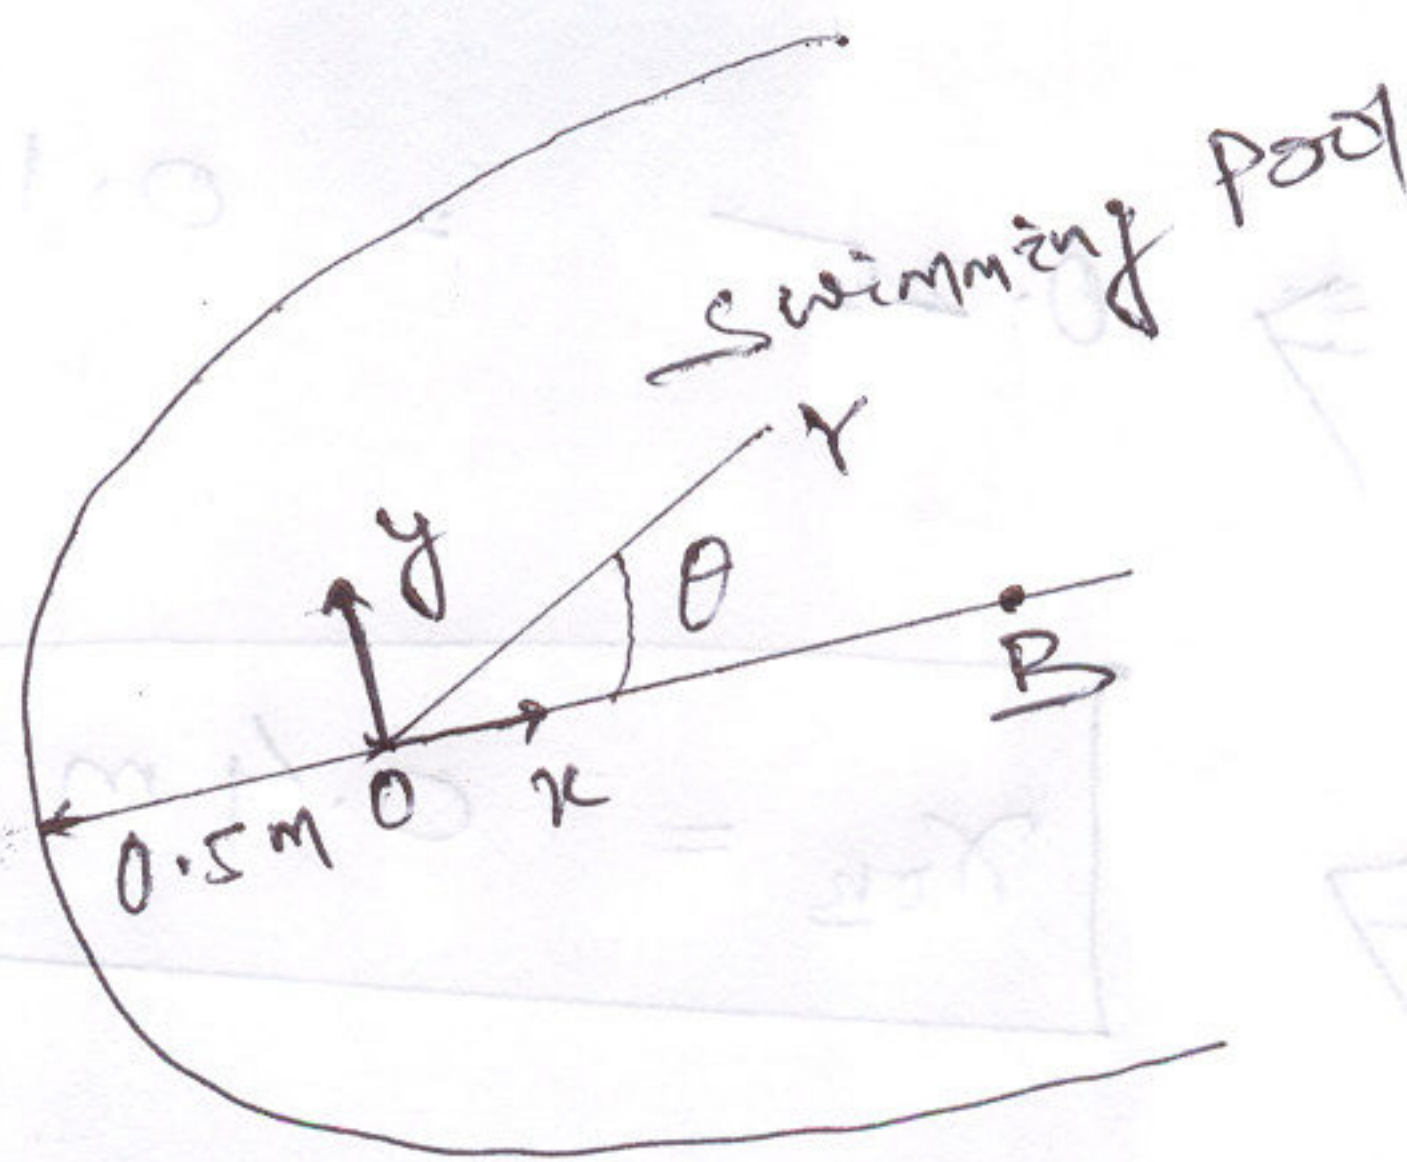 Swimming Pool
r
y
θ
B
0.5m
O
x